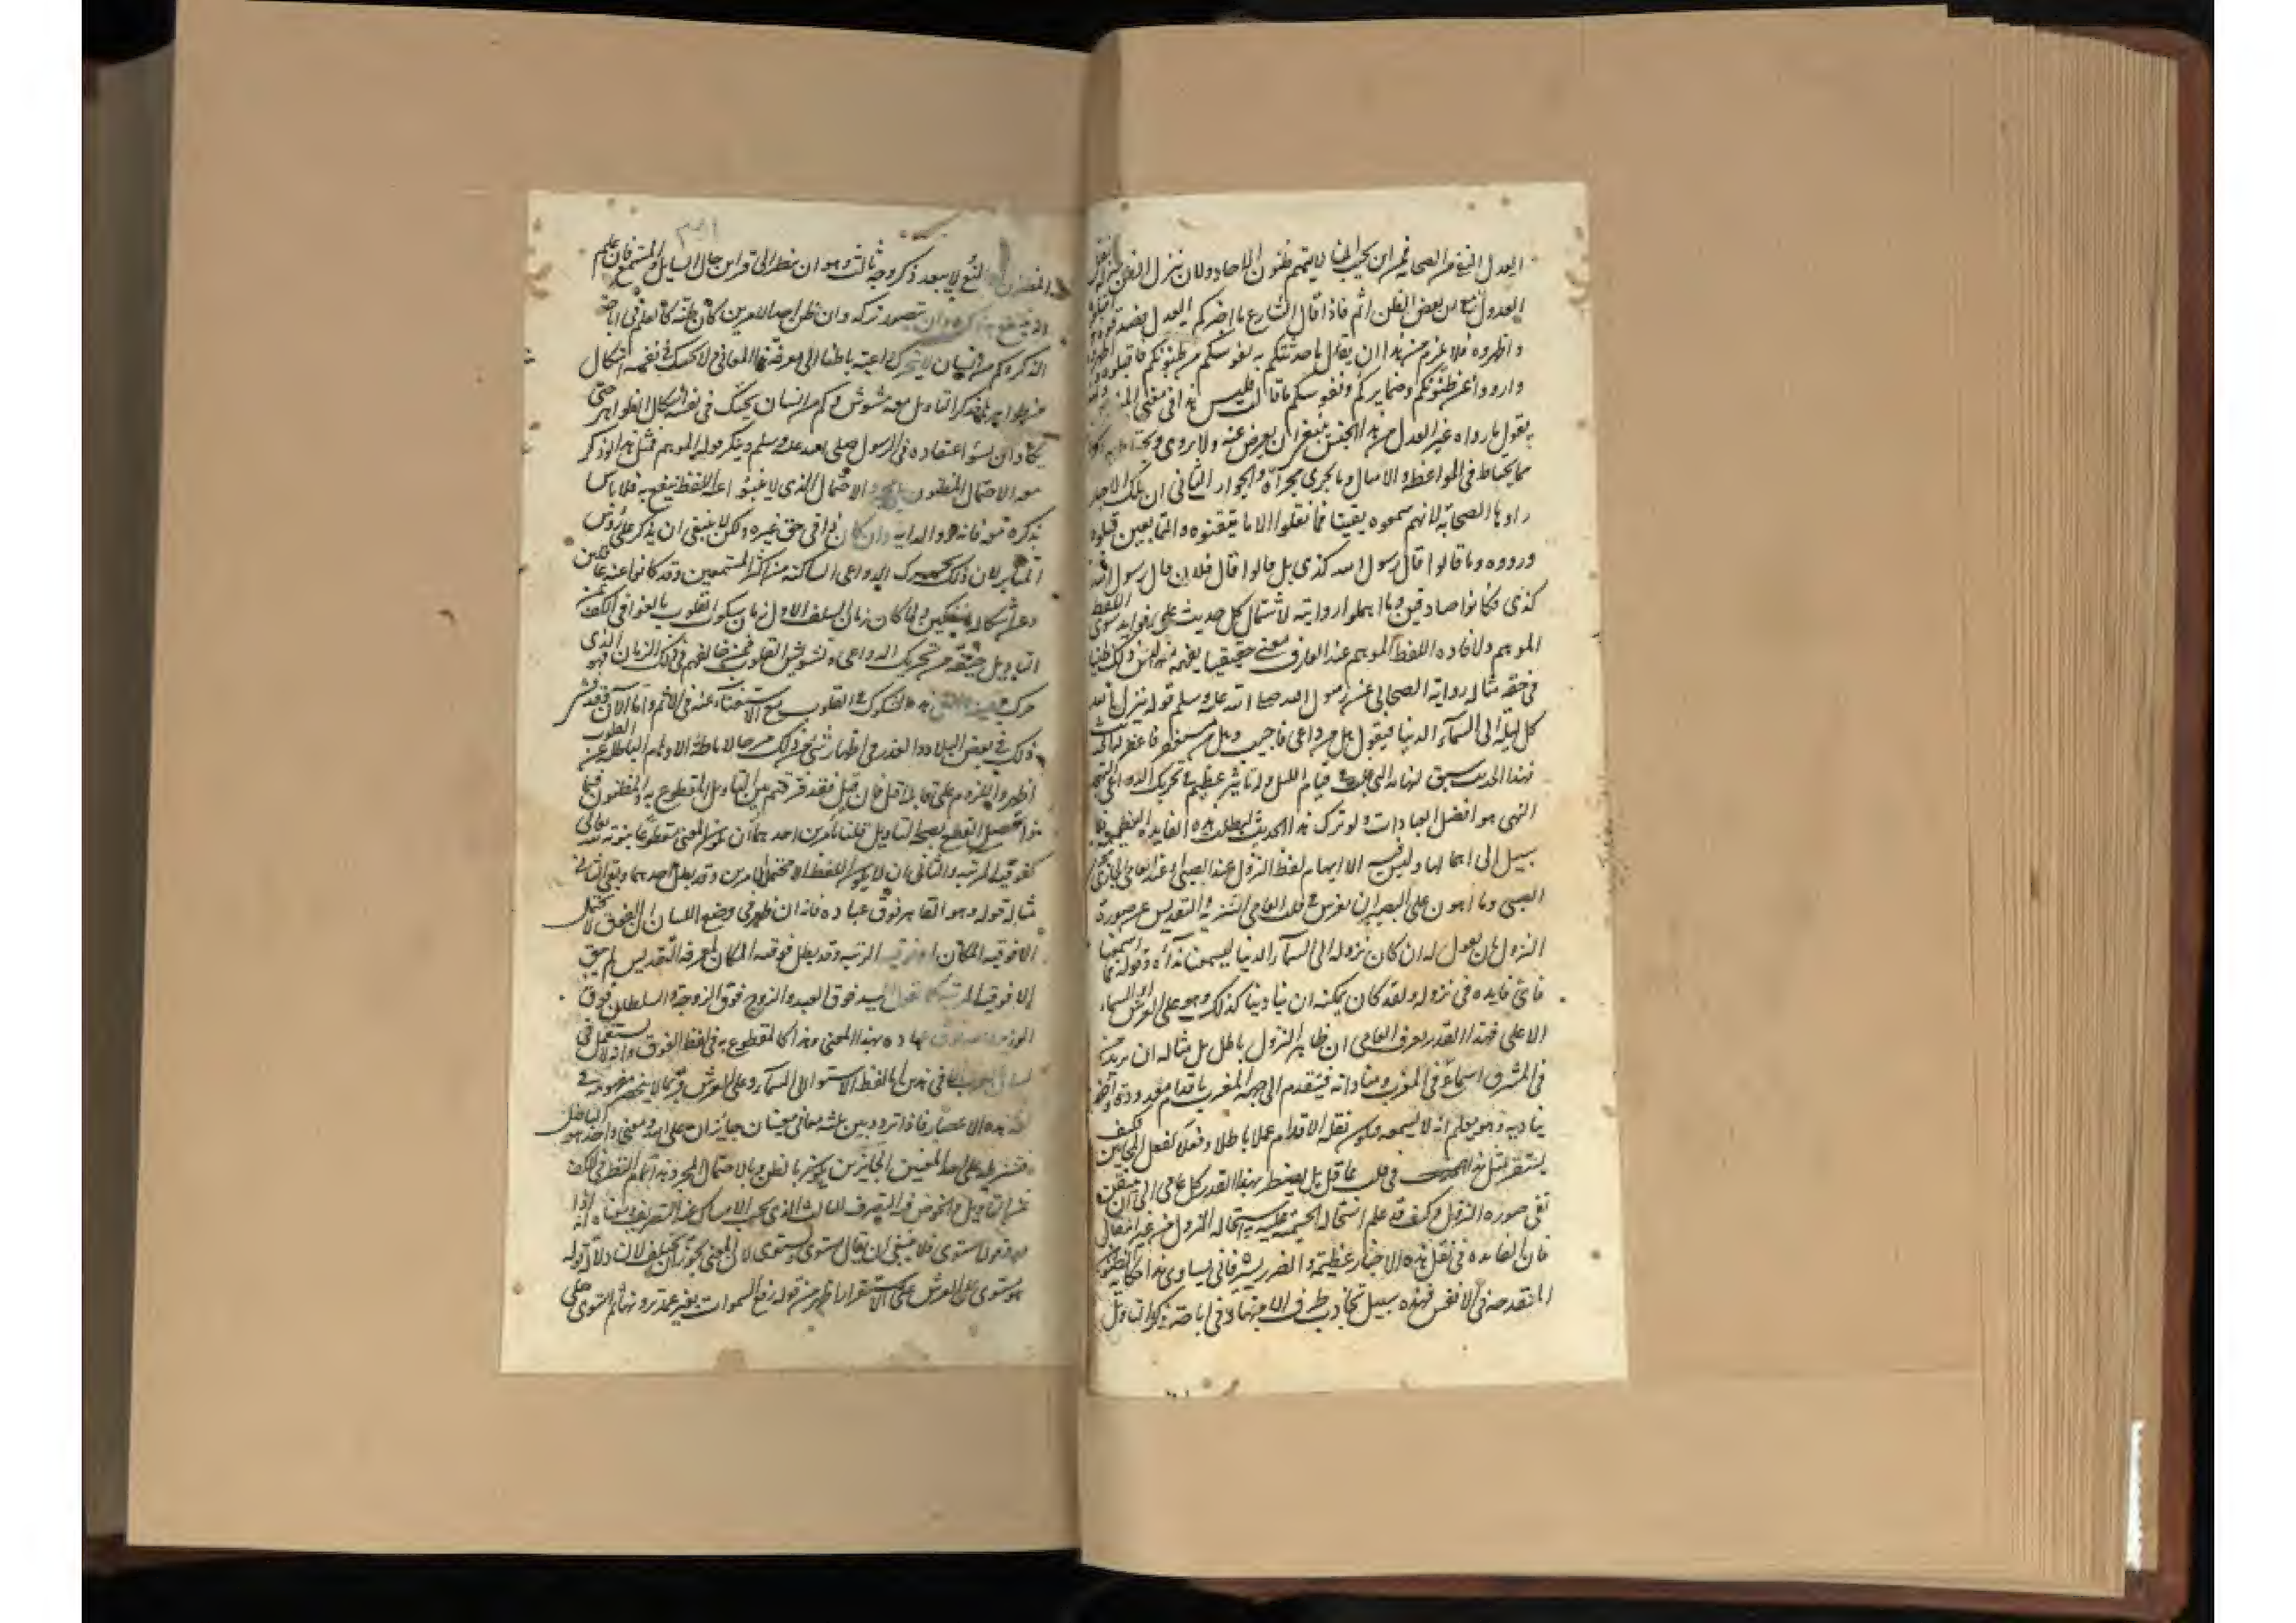 العدل النبي من الصحابة فمن اين يجب ان لا يتهم ظنون الاحاد ولان ينزل الظن منزلة نقل
العدول مع ان بعض الظن اثم فاذا قال الشارع ما اخبركم العدل فصدقوه واقبلوه
واظهروه فلا يلزم من هذا ان يقال ما حدثتكم به نفوسكم من ظنونكم فاقبلوه واظهروه
وارووا عن ظنونكم وضمايركم ونفوسكم ما قالت فليس هذا في معنى المنصوص ولهذا
يقول ما رواه غير العدل من هذا الجنس ينبغي ان يعرض عنه ولا يروى
مما يحتاط في المواعظ والامثال وما يجري مجراه والجواب الثاني ان تلك الاخبار
رواها الصحابة لانهم سمعوه يقينا فما نقلوا الا ما تيقنوه والتابعين قبلوه
ورووه وما قالوا قال رسول الله كذى بل قالوا قال فلان قال رسول الله
كذى فكانوا صادقين وما اهملوا روايته لاشتمال كل حديث على فوايد سوى اللفظ
الموهم ولافاده اللفظ الموهم عند العارف معنى حقيقيا يفهمه منه ليس ذلك ظنيا
في حقه مثاله رواية الصحابي عن رسول الله صلى الله عليه وسلم قوله ينزل الله
كل ليلة الى السماء الدنيا فيقول هل من داعى فاجيب وهل من مستغفر فاغفر له الحديث
فهذا الحديث سبق لنهاية الترغيب في قيام الليل وله تاثير عظيم في تحريك الدواعي للتهجد
الذي هو افضل العبادات ولو ترك هذا الحديث لبطلت هذه الفايدة العظيمة ولا
سبيل الى اهمالها وليس فيه الا ايهام لفظ النزول عند الصبي وعند العامي الجاري مجرى
الصبي وما اهون على البصير ان يغرس في قلب العامي التنزيه والتقديس عن صورة
النزول بان يقول له ان كان نزوله الى السماء الدنيا ليسمعنا نداءه وقوله فما اسمعنا
فاى فايده في نزوله ولقد كان يمكنه ان ينادينا كذلك وهو على العرش او السماء
الاعلى فهذا القدر يعرف العامي ان ظاهر النزول باطل بل مثاله ان يريد من
في المشرق اسماع من في المغرب ومناداته فيتقدم الى جهة المغرب باقدام معدودة واخذ
يناديه وهو يعلم انه لا يسمعه فيكون نقله الاقدام عملا باطلا وفعله كفعل المجانين فكيف
يستقر مثل هذا في قلب عاقل بل يضطر بهذا القدر كل عامي الى ان يتيقن
نفى صورة النزول وكيف وقد علم استحالة الجسمية عليه واستحالة النزول من غير انتقال
فان الفايده في نقل هذه الاخبار عظيمة والضرر يسير فانى يساوى هذا حكاية الظنون
المنقدحة في الانفس فهذه سبيل تجاذب طرق الاجتهاد في اباحة ذكر التاويل
المظنون او المنع ولا يبعد ذكر وجه ثالث وهو ان ينظر الى قراين حال السايل والمستمع فان علم
انه ينتفع به ذكره وان تضرر تركه وان ظن احد الامرين كان ظنه كالعلم في اباحة
الذكر وكم من انسان لا يتحرك داعيته باطنا الى معرفة هذه المعاني ولا يحيك في نفسه اشكال
من ظواهرها فذكر التاويل معه مشوش وكم من انسان يحيك في نفسه اشكال الظواهر حتى
يكاد ان يسوء اعتقاده في الرسول صلى الله عليه وسلم وينكر قوله الموهم فمثل هذا لو ذكر
معه الاحتمال المظنون بل مجرد الاحتمال الذي لا ينبو عنه اللفظ ينتفع به فلا باس
بذكره معه فانه دواء لدايه وان كان داء في حق غيره ولكن لا ينبغي ان يذكر على رؤس
المنابر لان ذلك يحرك الدواعي الساكنة من اكثر المستمعين وقد كانوا عنه غافلين
وعن اشكاله منفكين ولما كان زمان السلف الاول زمان سكون القلوب بالغوا في الكف
عن التاويل خيفة من تحريك الدواعي وتشويش القلوب فمن خالفهم في ذلك الزمان فهو الذي
حرك الفتنة والقى هذه الشكوك في القلوب مع الاستغناء عنه فباء بالاثم واما الآن وقد فشى
ذلك في بعض البلاد فالعذر في اظهار شئ من ذلك رجاء لاماطة الاوهام الباطلة عن القلوب
اظهر واللوم على قايله اقل فان قيل فقد فرقتم بين التاويل المقطوع به والمظنون فبماذا
يحصل القطع بصحة التاويل قلنا بامرين احدهما ان يكون المعنى مقطوعا بثبوته لله تعالى
كفوقية المرتبة والثاني ان لا يكون اللفظ الا محتملا لامرين وقد بطل احدهما وبقى الثاني
مثاله قوله وهو القاهر فوق عباده فانه ان ظهر في وضع اللسان ان الفوق لا يحتمل
الا فوقية المكان او فوقية الرتبة وقد بطل فوقية المكان لمعرفة التقديس لم يبق
الا فوقية المرتبة كما تقول السيد فوق العبد والزوج فوق الزوجة والسلطان فوق
الوزير فالله فوق عباده بهذا المعنى وهذا كالمقطوع به في لفظ الفوق وانه لا يستعمل في
لسان العرب الا في هذين اما لفظ الاستواء الى السماء وعلى العرش فربما لا ينحصر مفهومه في
اللغة هذا الانحصار فاذا تردد بين ثلثة معاني معنيان جايزان على الله ومعنى واحد هو الباطل
فتنزيله على احد المعنيين الجايزين يكون بالظن وبالاحتمال المجرد وهذا تمام النظر في الكف
عن التاويل
استوى فلا ينبغي ان يقال مستوى ويستوى لان المعنى يجوز ان يختلف لان دلالة قوله
هو مستوى على العرش على الاستقرار اظهر من قوله رفع السموات بغير عمد ترونها ثم استوى على